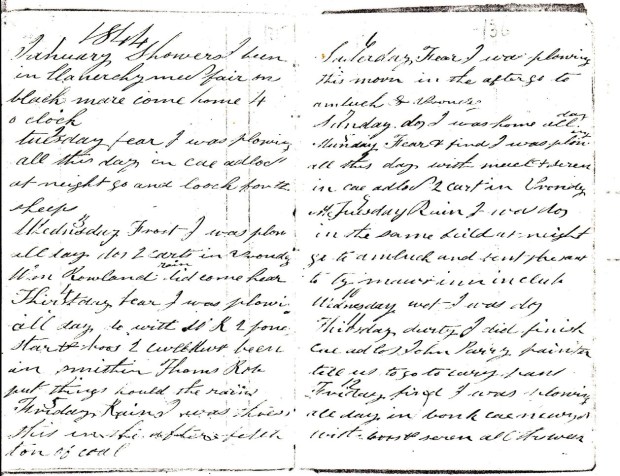 1844
January Showers I been
in llanerchymed fair on
black mare come home 4
o clock
tuesday fear I was plowing
all this day in cae adlos
at neight go and looch for the
sheep
Wednesday Frost I was plow
all day dos 2 carts in Vrondy
Wm Rowland did come hear
rain
Thirsday fear I was plowi
all day to with
star & bos 2 been
in smithin Thoms Rob
put things hould the rains
Friday Rains I was
this in the after fetch
ton of coal
136
Saterday Fear I was plowing
this morn in the after go to
amluch & Vrondy
Sunday do I was home all day
Munday Fear & find I was plow
all this day with & seren
in cae adlos 2 cart in Vrondy
Tuesday Rain I was do
in the same feild at night
go to amluch and sent the
to ty mawr inn in club
Wednesday wet I was do
Thirsday durty I did finish
cae adlos John Parry painter
tell us to go to cary
Friday find I was plowing
all day in bonk cae newydd
with boos & seren all